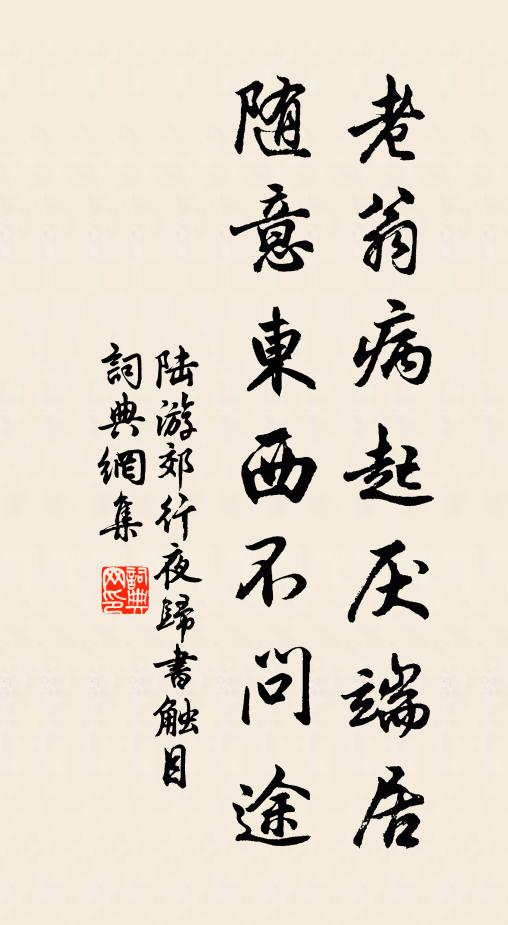 老翁病起厌端居
随意東西不问途
陆游郊行夜歸書触目
詞典網集
詞典网印